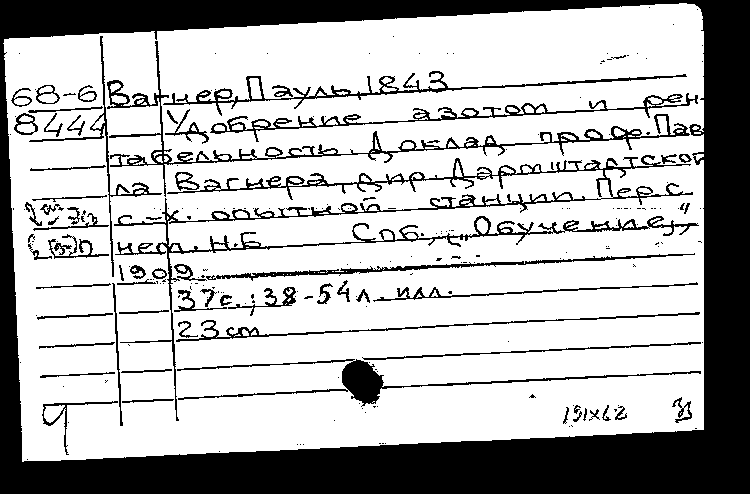 68-6 Вагнер, Пауль, 1843
8444 Удобрение азотом и рен-
табельность. Доклад проф. Пав
ла Вагнера, дир. Дармштадтской
с.-х. опытной станции. Пер. с
нем. Н.Б. Спб., „Обучение,“
1909.
37с.; 38-54л. илл.
23 cm
Ч